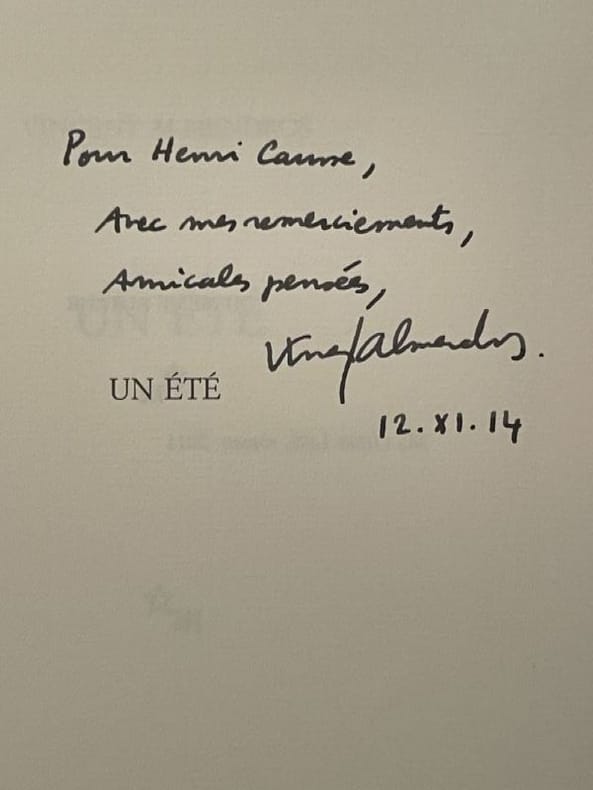 Pour Henri Causse,
Avec mes remerciements,
Amicales pensées,
Vincent Almendros.
UN ÉTÉ
12.XI.14